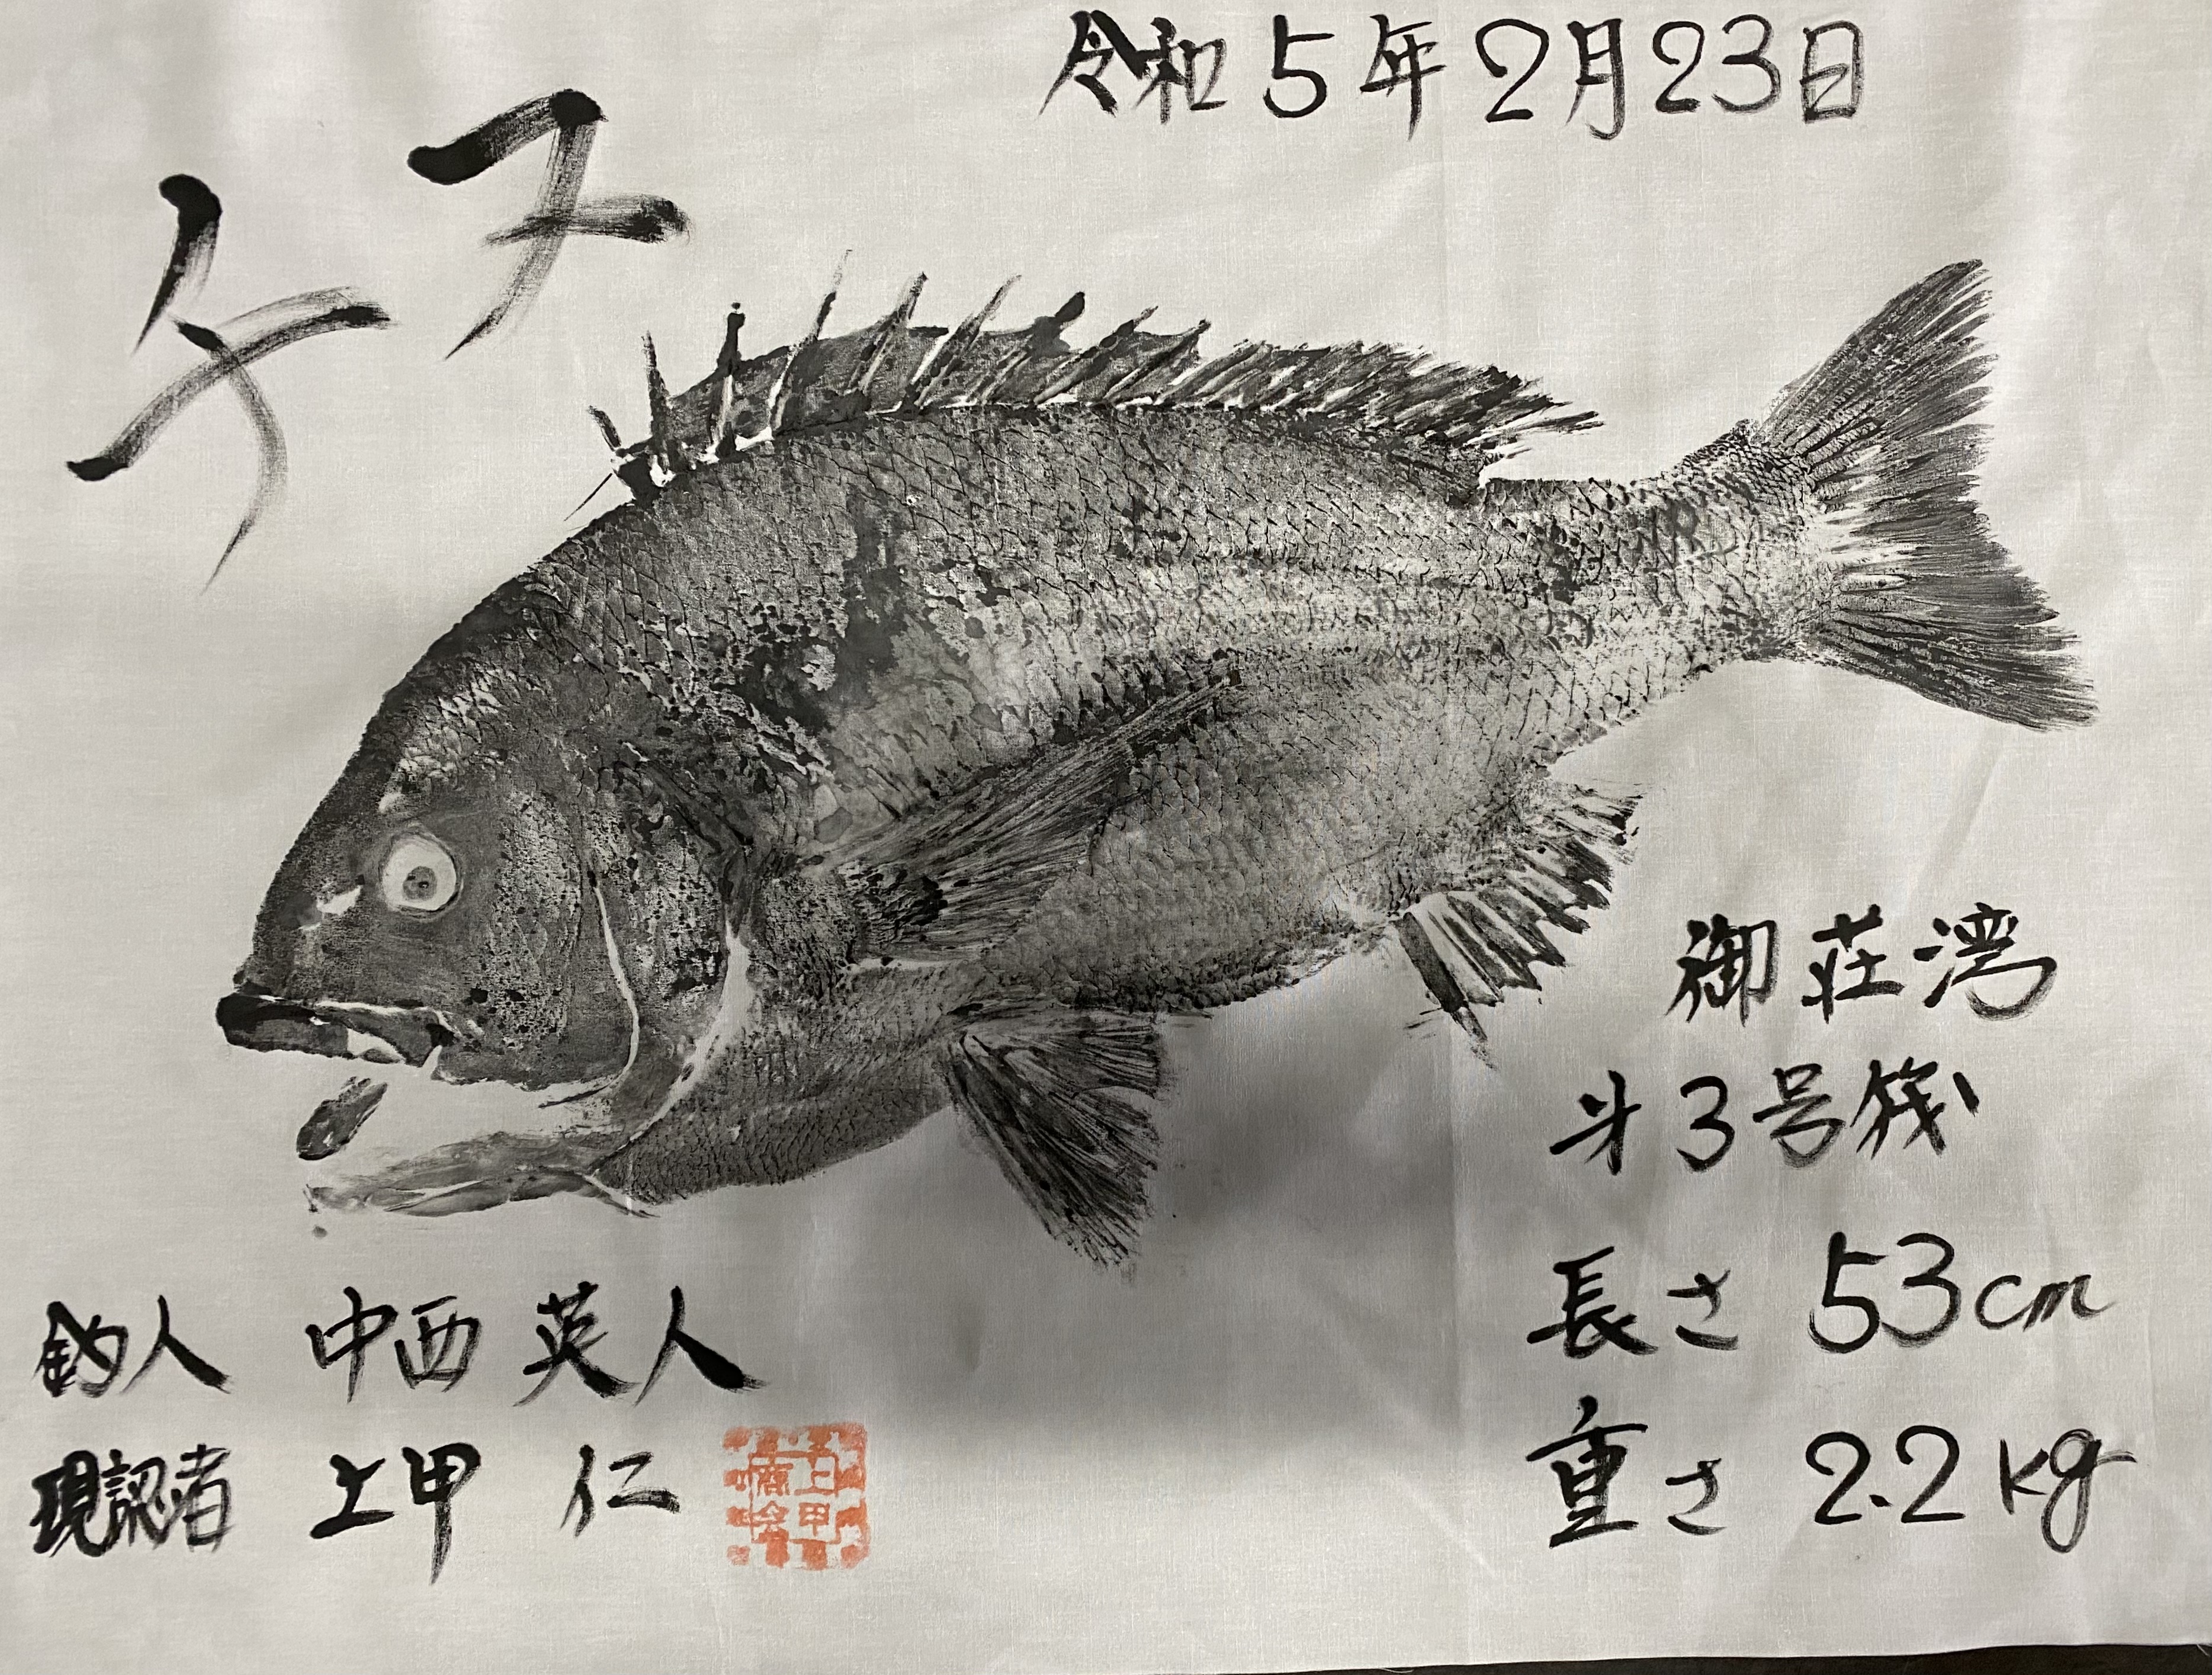 令和5年2月23日
チヌ
御荘湾
才3号筏
長さ 53cm
重さ 2.2kg
釣人 中西 英人
現認者 上甲 仁
上甲
商会